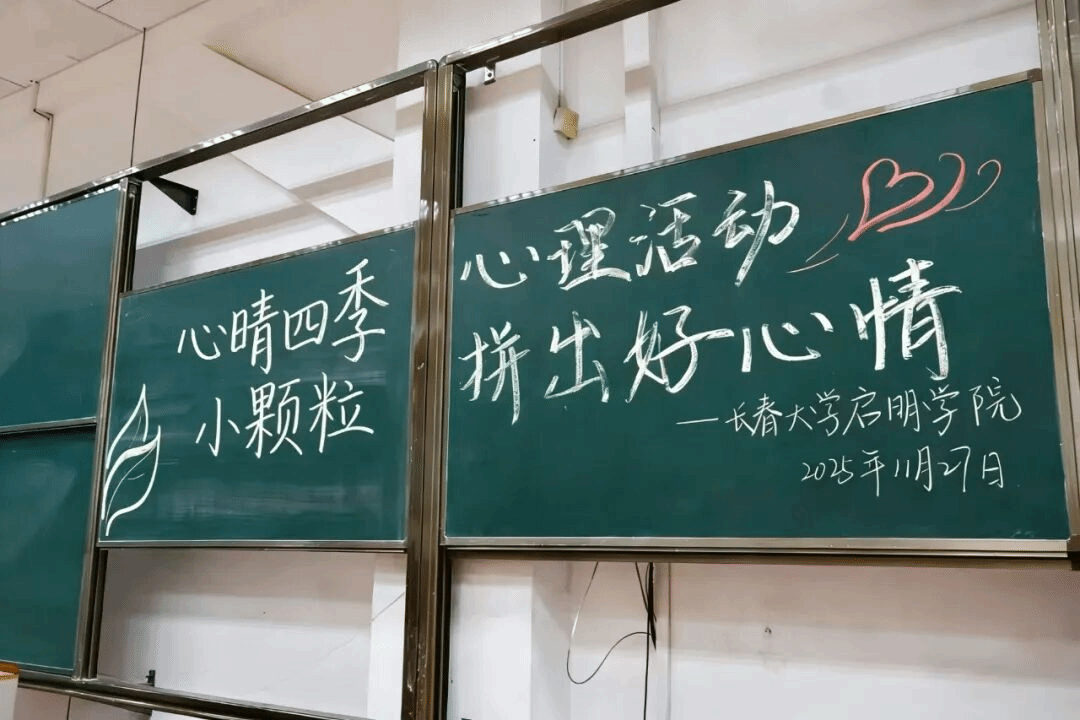 心晴四季
小颗粒
心理活动
拼出好心情
—长春大学启明学院
2025年11月27日